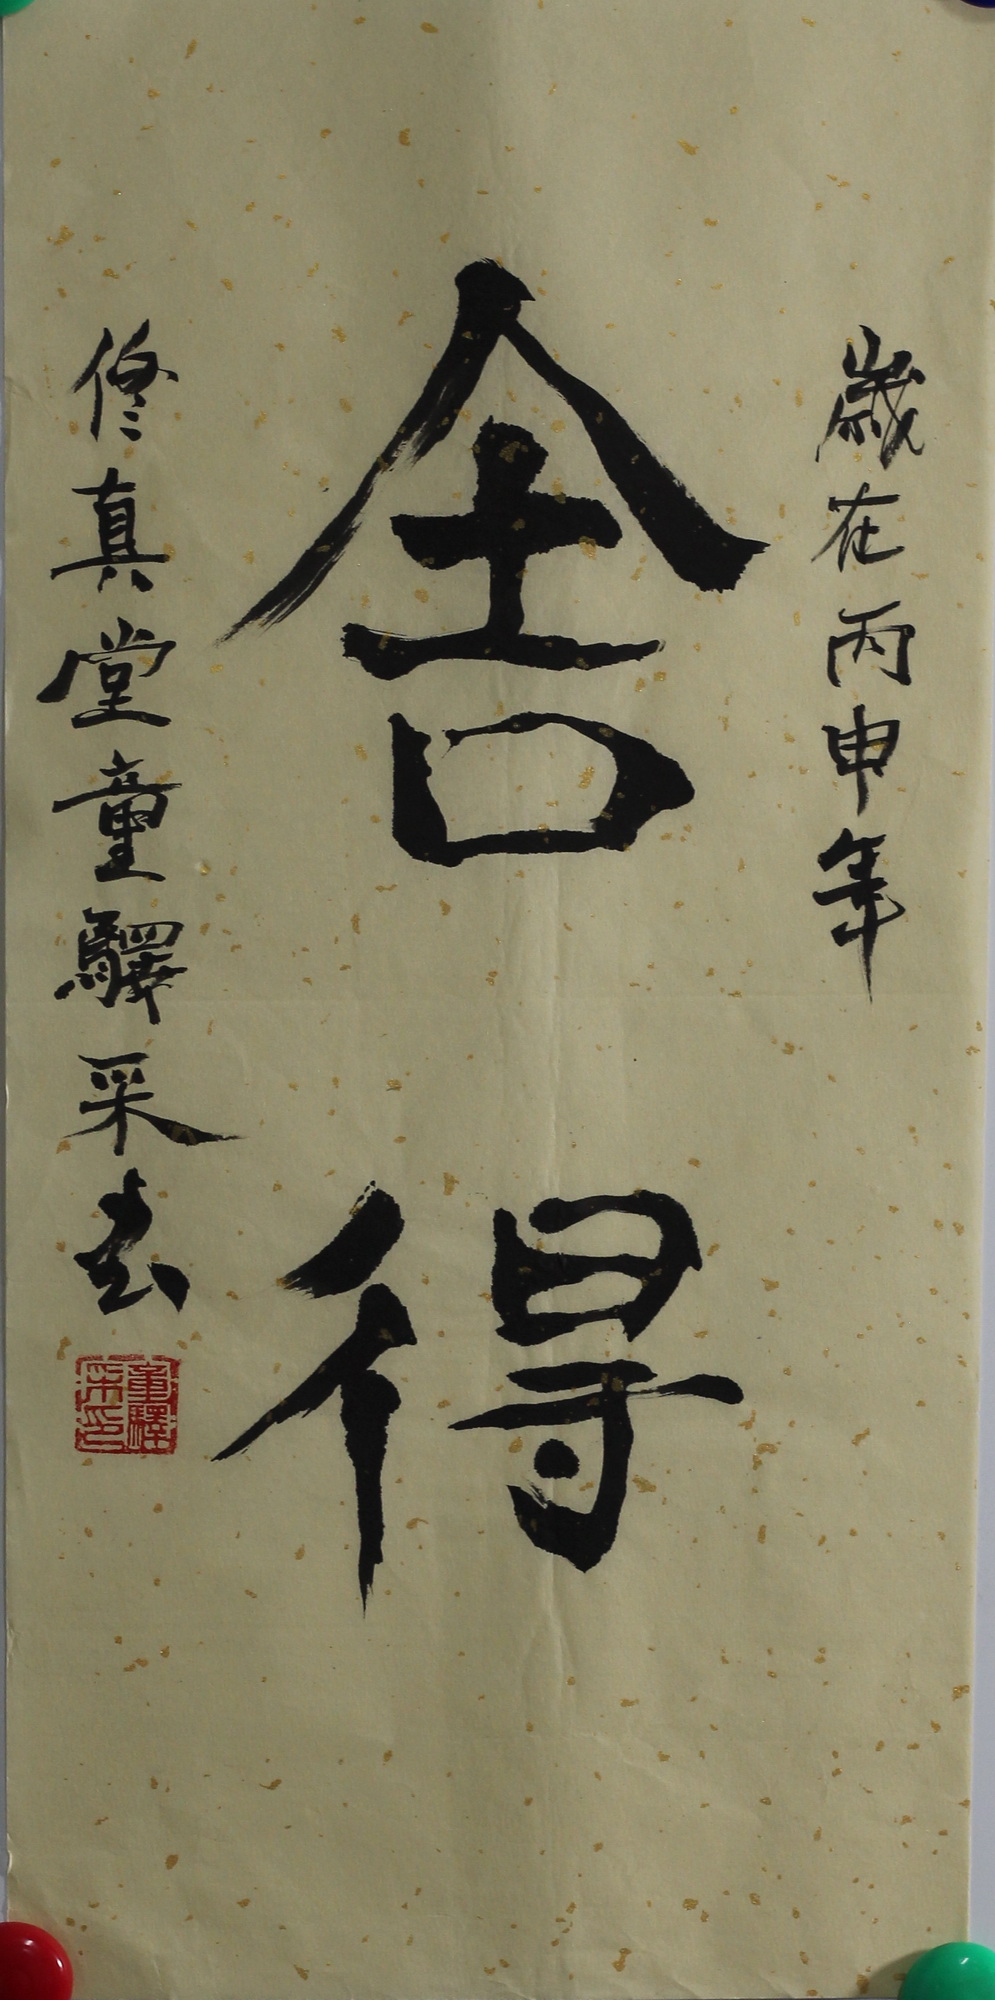 歲在丙申年
舍得
修真堂童驛采書
童驛采印